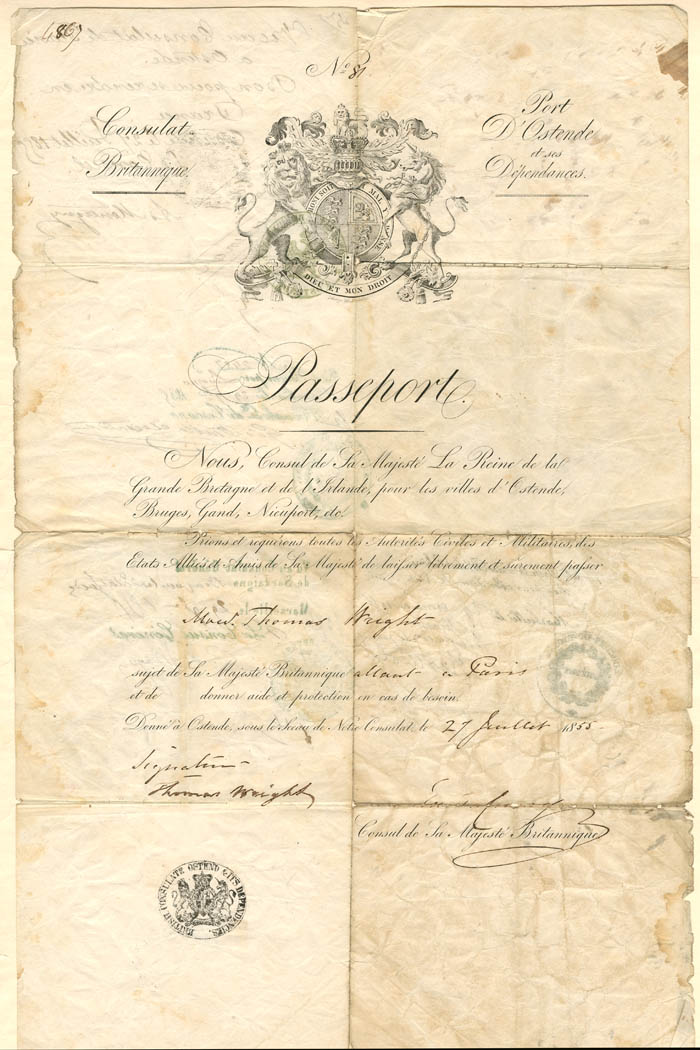 4867
No 81
Consulat
Britannique.
Port
D'Ostende
et ses
Dépendances.
HONI SOIT MAL Y PENSE
DIEU ET MON DROIT
Passeport.
Nous, Consul de Sa Majesté La Reine de la
Grande Bretagne et de l'Irlande, pour les villes d'Ostende,
Bruges, Gand, Nieuport, etc.
Prions et requérons toutes les Autorités Civiles et Militaires, des
Etats Alliés et Amis de Sa Majesté de laisser librement et surement passer
Thomas Wright
sujet de Sa Majesté Britannique allant à Paris
et de donner aide et protection en cas de besoin.
Donné à Ostende, sous le Sceau de Notre Consulat, le 27 Juillet 1855
Signature
Thomas Wright
Consul de Sa Majesté Britannique
BRITISH CONSULATE OSTEND & ITS DEPENDENCIES.